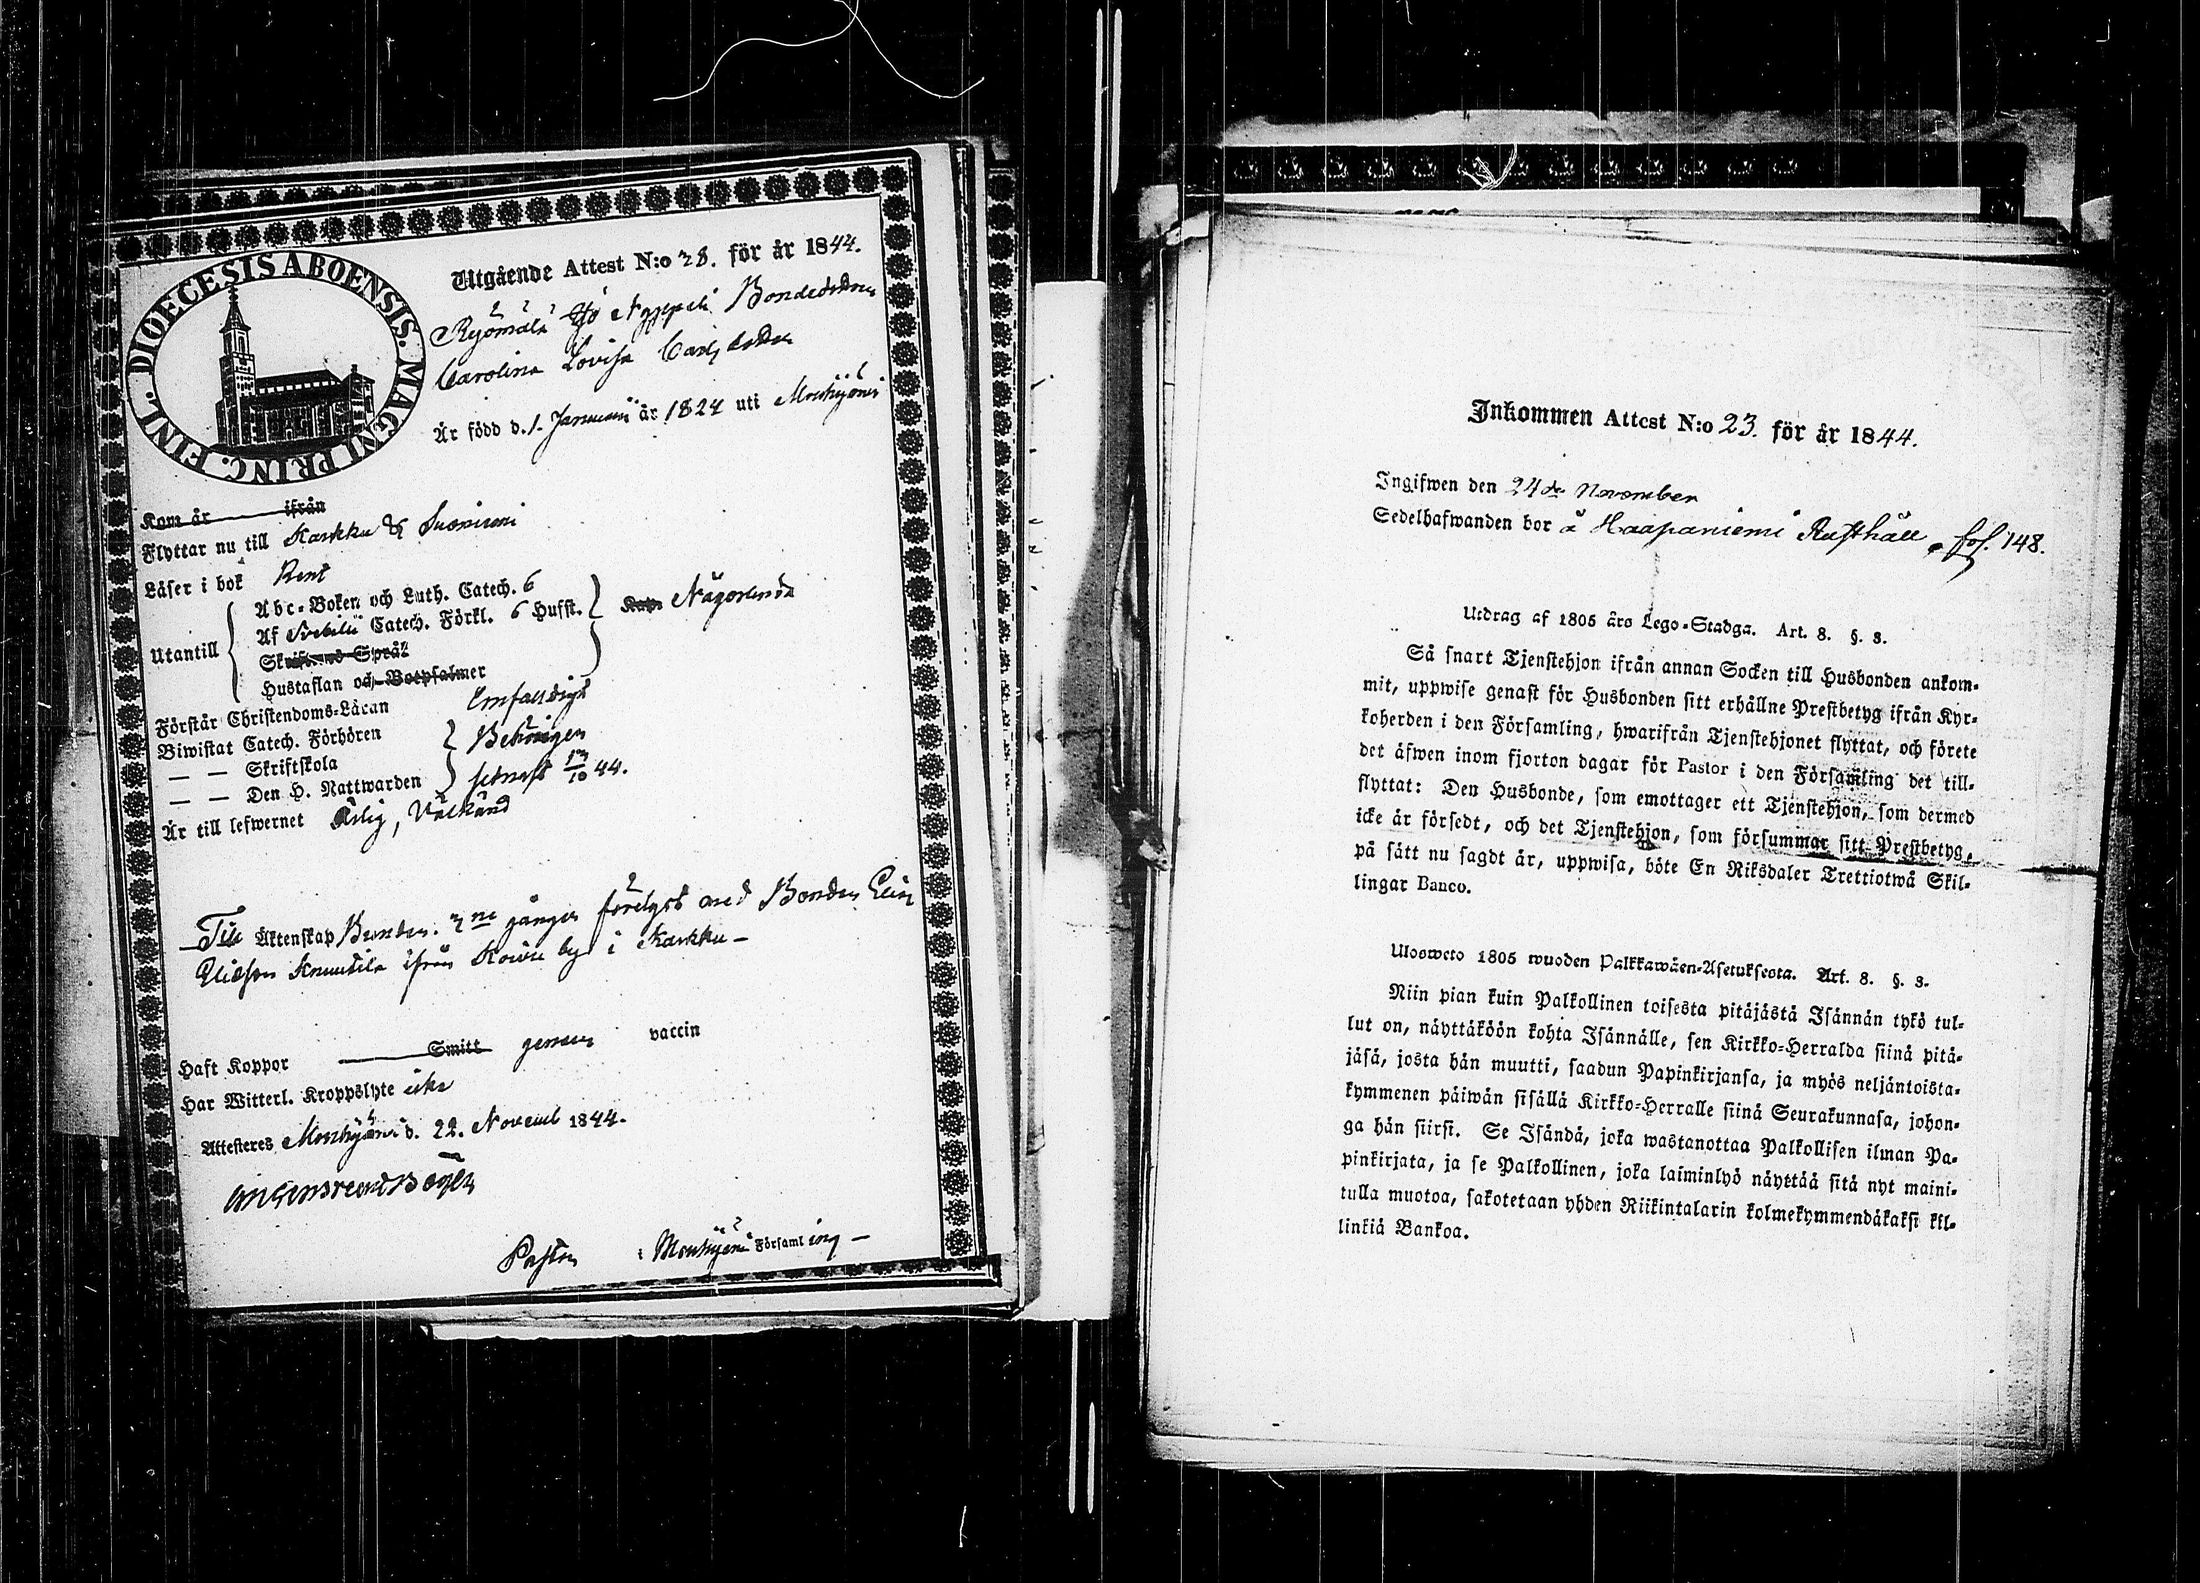 DIOECESIS ABOENSIS. MAGNI PRINC. FINL.
Utgående Attest N:o 28. för år 1844.
Bondedottren
Carolina Lovisa Carlsdotter
Är född d. 1. Januarii år 1824 uti Mouhijärvi
Kom år ifrån
Flyttar nu till Karkku & Suoniemi
Läser i bok Rent
Utantill
Abc-Boken och Luth. Catech. 6
Af Svebilii Catech. Förkl. 6 Hufst.
Någorlunda
Skriftenes Språk
Hustaflan och Botpsalmer
Förstår Christendoms-Läran Enfaldigt
Biwistat Catech. Förhören
— — Skriftskola Behörigen
— — Den H. Nattwarden sednast 13/10 44.
Är till lefwernet Ärlig, Välkänd
Till Äktenskap gånger med Bonden
ifrån by i Karkku —
Haft Koppor Smitt genom vaccin
Har Witterl. Kroppslyte icke
Attesteres Mouhijärvi d. 22. Novemb 1844.
Pastor i Mouhijärvi Församling —
Inkommen Attest N:o 23. för år 1844.
Ingifwen den 24de November
Sedelhafwanden bor å Haapaniemi Rusthåll, fol. 148.
Utdrag af 1805 års Lego-Stadga. Art. 8. §. 3.
Så snart Tjenstehjon ifrån annan Socken till Husbonden ankom-
mit, uppwise genast för Husbonden sitt erhållne Prestbetyg ifrån Kyr-
koherden i den Församling, hwarifrån Tjenstehjonet flyttat, och förete
det äfwen inom fjorton dagar för Pastor i den Församling det till-
flyttat: Den Husbonde, som emottager ett Tjenstehjon, som dermed
icke är försedt, och det Tjenstehjon, som försummar sitt Prestbetyg,
på sätt nu sagdt är, uppwisa, böte En Riksdaler Trettiotwå Skil-
lingar Banco.
Ulosweto 1805 wuoden Palkkawäen-Asetuksesta. Art. 8. §. 3.
Niin pian kuin Palkollinen toisesta pitäjästä Isännän tykö tul-
lut on, näyttäköön kohta Isännälle, sen Kirkko-Herralda siinä pitä-
jäsä, josta hän muutti, saadun Papinkirjansa, ja myös neljäntoista-
kymmenen päiwän sisällä Kirkko-Herralle siinä Seurakunnasa, johon-
ga hän siirsi. Se Isändä, joka wastanottaa Palkollisen ilman Pa-
pinkirjata, ja se Palkollinen, joka laiminlyö näyttää sitä nyt maini-
tulla muotoa, sakotetaan yhden Riikintalarin kolmekymmendäkaksi kil-
linkiä Bankoa.